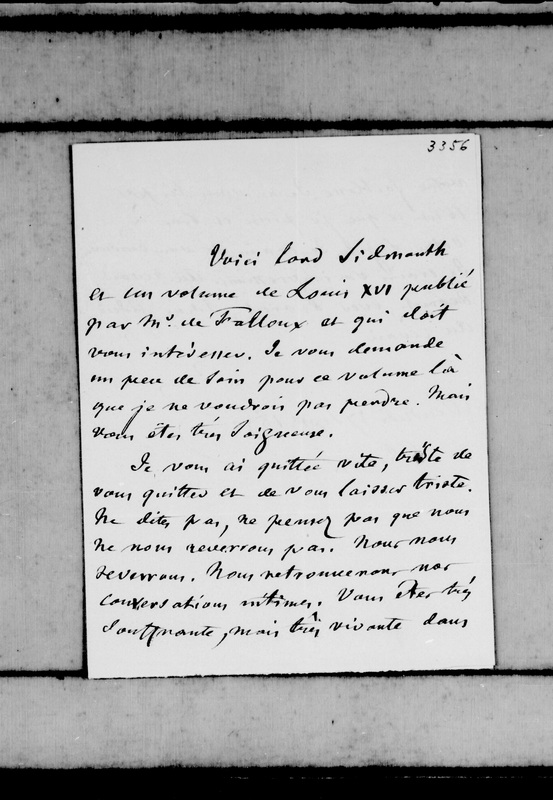 3356
Voici Lord Sidmouth
et un volume de Louis XVI publié
par Mr. de Falloux et qui doit
vous intéresser. Je vous demande
un peu de soin pour ce volume là
que je ne voudrois pas perdre. Mais
vous êtes très soigneuse.
Je vous ai quittée vite, triste de
vous quitter et de vous laisser triste.
Ne dites pas, ne pensez pas que nous
ne nous reverrons pas. Nous nous
reverrons. Nous retrouverons nos
conversations intimes. Vous êtes très
souffrante, mais très vivante dans